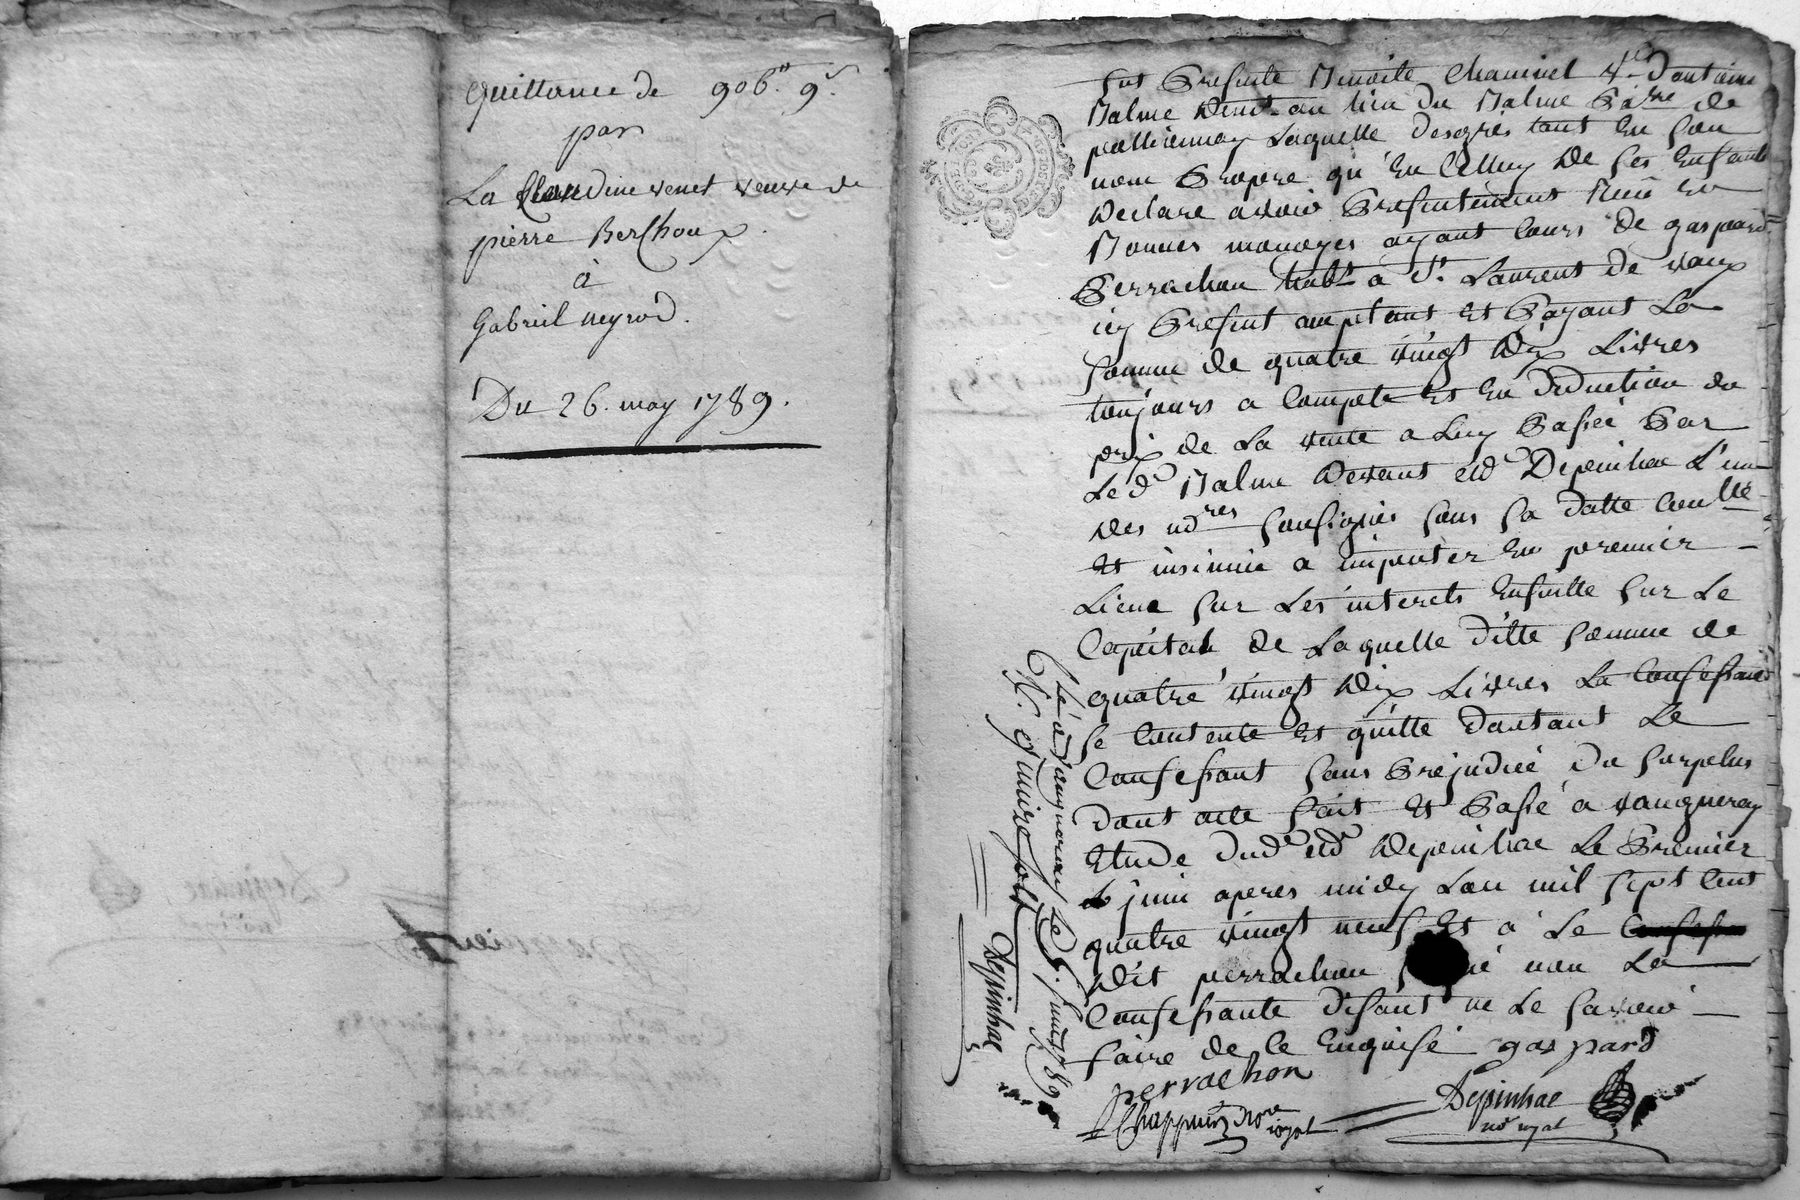 quittance de 906# 9s
par
La Claudine venet veuve de
pierre Berchoux
à
Gabriel neyrod.
Du 26. may 1789.
fut Presente Benoite Chamiel Ve. d'antoine
Balme demt. au lieu du Balme Parre de
pollionnay Laquelle desgrés tant En son
nom Propre qu'En Celluy de ses Enfants
declare avoir Presentement Recu En
Bonnes monoyes ayant Cours de gaspard
Perrachon habt. a St. Laurent de vaux
icy Present comptant et Payant La
somme de quatre vingt dix Livres
toujours a Compte et En deduction du
prix de La vente a Luy Passée Par
Le dt Balme devant Me Depinhac L'un
des ndres soussignés sous sa datte Conllé
et insinué a imputer En premier
Lieux sur Les interets Ensuitte sur Le
Capital de Laquelle ditte somme de
quatre vingt dix Livres La Confessante
se Contente et quitte dautant Le
Confessant sans Prejudice du surplus
dont acte fait et Passé a vaugneray
Etude dudt Me Depinhac Le Premier
juin apres midy L'an mil sept Cent
quatre vingt neuf et a Le
dit perrachon signé non La
Confessante disant ne Le savoir
faire de Ce Enquise gaspard
perrachon
Chappuis Nore royal
Depinhac
nore royal
Clé à Vaugneray Le 8. juin 1789
R. quinze sols
Depinhac